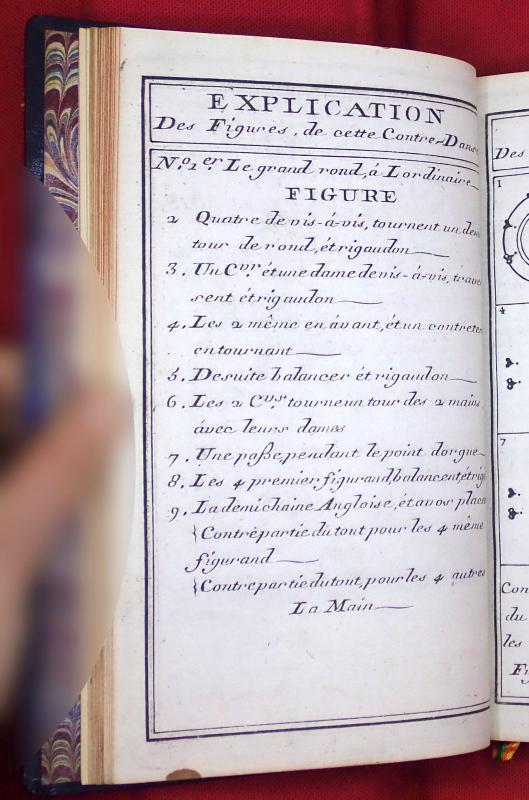 EXPLICATION
Des Figures, de cette Contre-Danse
N.º 1.er Le grand rond, á Lordinaire
FIGURE
2 Quatre de vis-á-vis, tournent un demi
tour de rond, ét rigaudon
3. Un C.vr ét une dame de vis-á-vis, trave
sent ét rigaudon
4. Les 2 même en ávant, ét un contretem
en tournant
5. De suite balancer ét rigaudon
6. Les 2 C.vrs tourne un tour des 2 mains
ávec leurs dames
7. Une poße, pendant le point dorgue
8. Les 4 premier figurand, balancent, ét rig
9. La demi chaine Angloise, ét a vos place
{Contrepartie du tout pour les 4 même
figurand
{Contrepartie du tout, pour les 4 autres
La Main
Des
1
4
7
Con
du
les